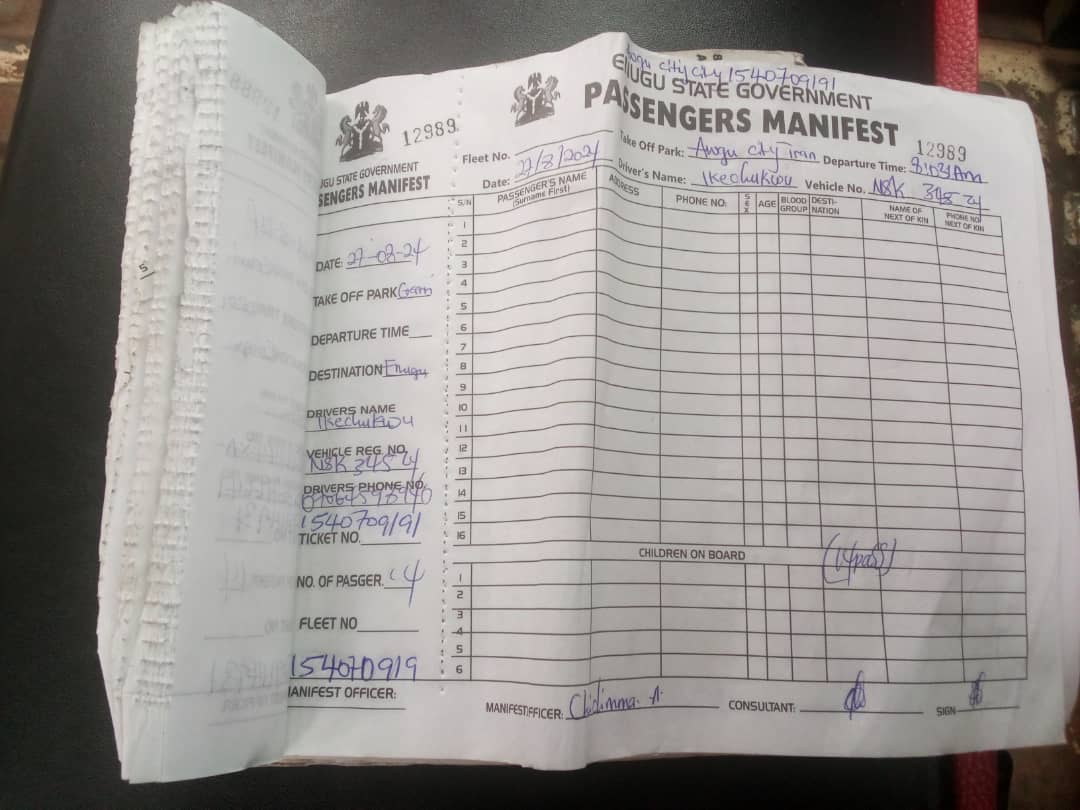 12989
UGU STATE GOVERNMENT
SENGERS MANIFEST
DATE: 27-08-24
TAKE OFF PARK
DEPARTURE TIME
DESTINATION Enugu
DRIVERS NAME
Ikechukwu
VEHICLE REG. NO.
NSK 345 24
DRIVERS PHONE NO.
1540709191
TICKET NO.
NO. OF PASGER. 14
FLEET NO
154070919
MANIFEST OFFICER:
city city 1540709191
ENUGU STATE GOVERNMENT
PASSENGERS MANIFEST
12989
Fleet No.
Take Off Park: city Departure Time:
Date: 27/8/2024 Driver's Name: Ikechukwu Vehicle No. NSK 345 24
S/N PASSENGER'S NAME (Surname First) ADDRESS PHONE NO: SEX AGE BLOOD GROUP DESTI-NATION NAME OF NEXT OF KIN PHONE NO NEXT OF KIN
1
2
3
4
5
6
7
8
9
10
11
12
13
14
15
16
CHILDREN ON BOARD (14pass)
1
2
3
4
5
6
MANIFEST OFFICER: Chidimma. A. CONSULTANT: SIGN